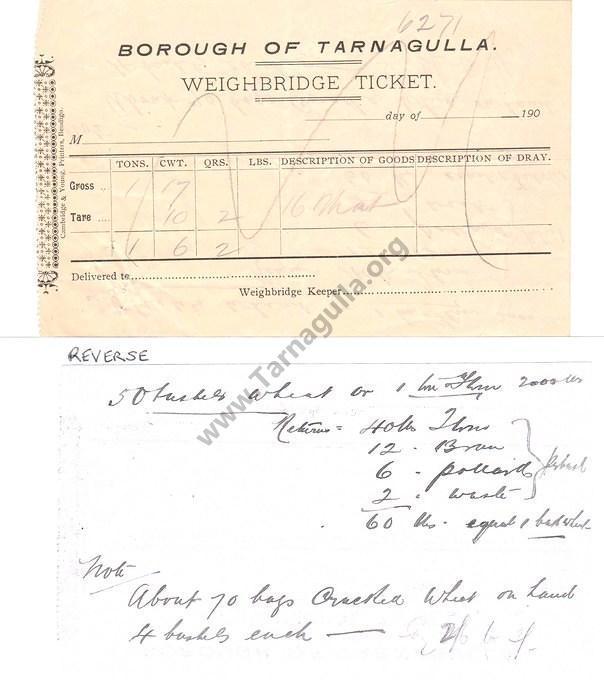 6271
BOROUGH OF TARNAGULLA.
WEIGHBRIDGE TICKET.
day of 190
M
TONS. CWT. QRS. LBS. DESCRIPTION OF GOODS DESCRIPTION OF DRAY.
Gross .... 1 17
Tare .... 10 2 16
1 6 2
Delivered to
Weighbridge Keeper
Cambridge & Young, Printers, Bendigo.
www.Tarnagulla.org
REVERSE
50 bushels wheat or 1 2000 lbs
Returns = 40 lbs
12 . Bran
6 . pollard
2 . waste
60 lbs. equal 1
Note
About 70 bags Cracked Wheat on hand
4 bushels each — 2/6